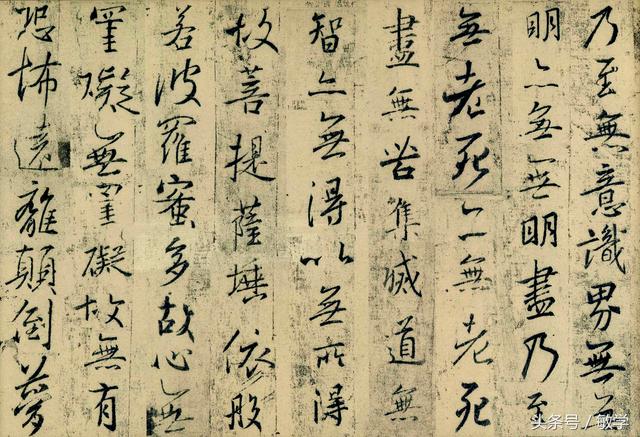 乃至無意識界無無
明亦無無明盡乃至
無老死亦無老死
盡無苦集滅道無
智亦無得以無所得
故菩提薩埵依般
若波羅蜜多故心無
罣礙無罣礙故無有
恐怖遠離顛倒夢
头条号 / 敏学